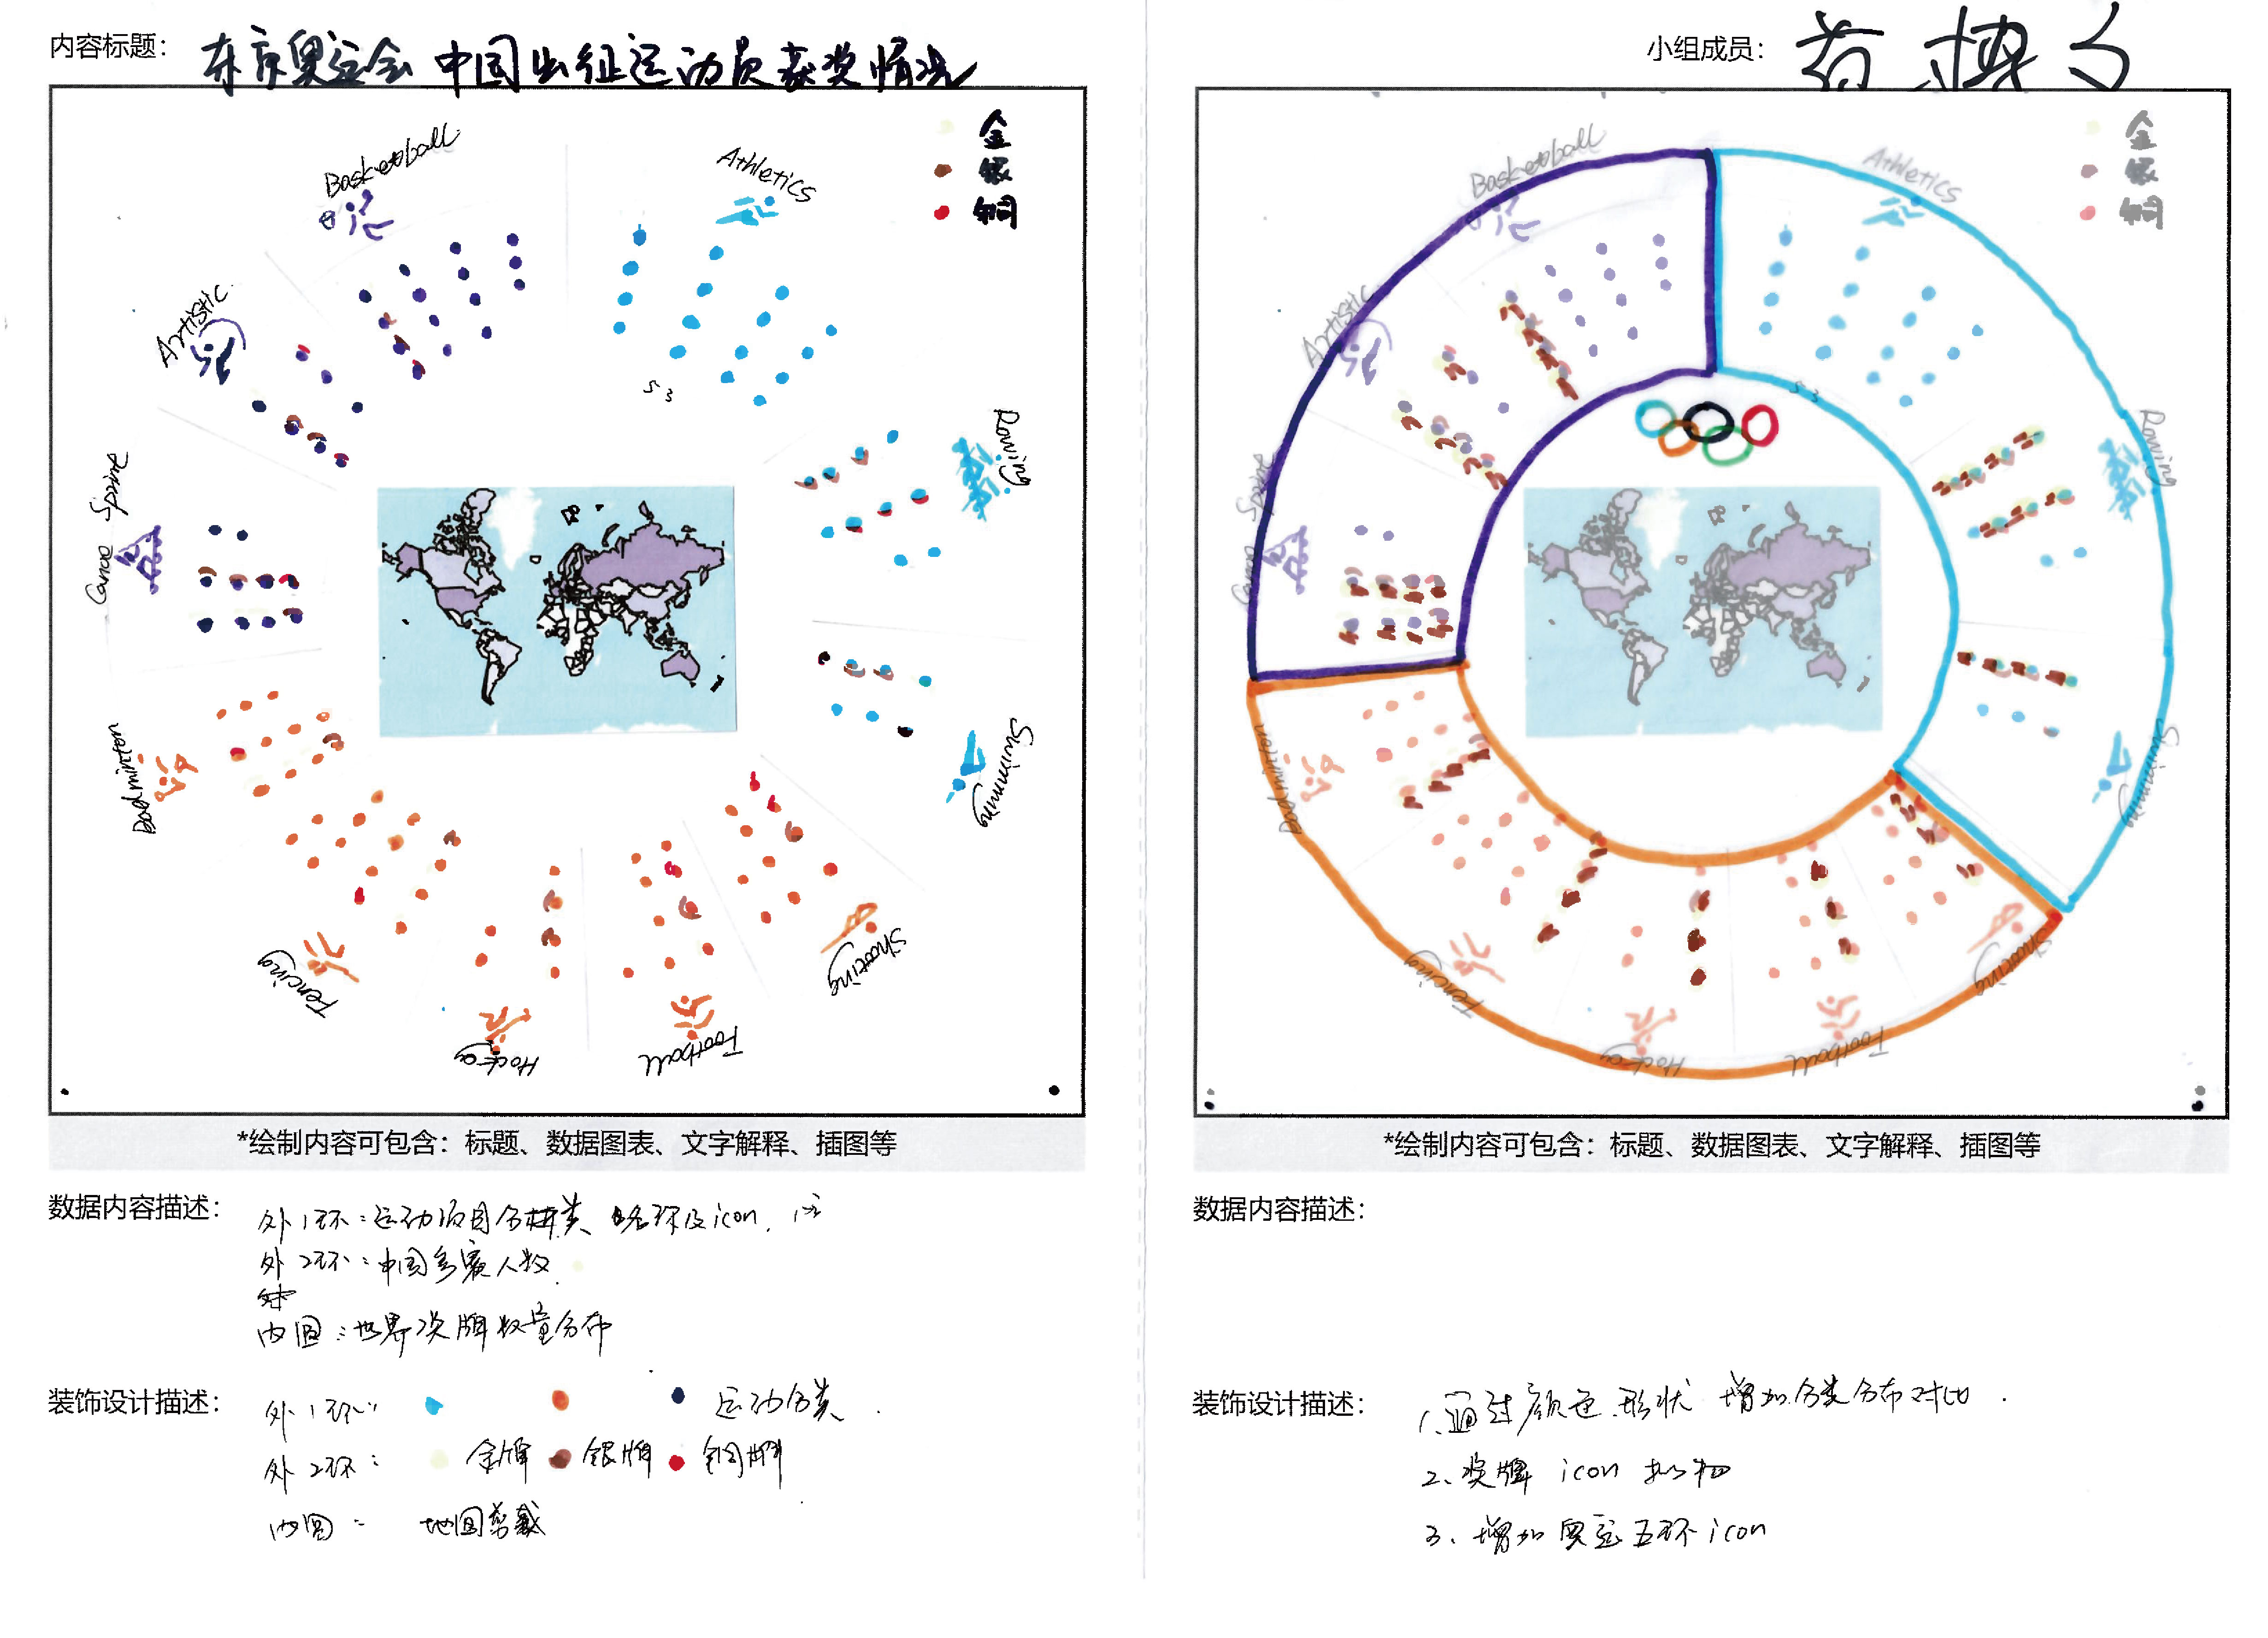 内容标题：东京奥运会 中国出征运动员获奖情况
金
银
铜
Basketball
Athletics
Artistic
Rowing
Canoe Sprine
Swimming
Badminton
Shooting
Fencing
Hockey
Football
53
*绘制内容可包含：标题、数据图表、文字解释、插图等
数据内容描述：
外1环：运动项目分类 名称及icon.
外2环：中国参赛人数
内圆：世界奖牌数量分布
装饰设计描述：
外1环： 运动分类
外2环： 金牌 银牌 铜牌
内圆： 地图剪裁
小组成员：
金
银
铜
Basketball
Athletics
Artistic
Rowing
Canoe Sprine
Swimming
Badminton
Shooting
Fencing
Hockey
Football
53
*绘制内容可包含：标题、数据图表、文字解释、插图等
数据内容描述：
装饰设计描述：
1.通过颜色、形状 增加分类分布对比.
2、奖牌 icon
3、增加奥运五环icon